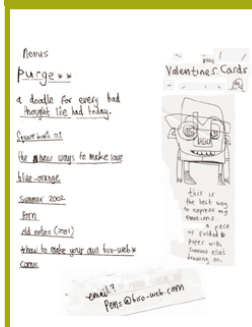 Menus
Purge **
a doodle for every bad
thought I've had today.
Square book no1
the new ways to make love
blue-orange
Summer 2002
form
old notes (2001)
*how to make your own biro-web*
comic
Valentines Cards
this is
the best way
to express my
emotions
a piece
of folded
paper with
someone elses
drawing on
email?
Pens@biro-web.com